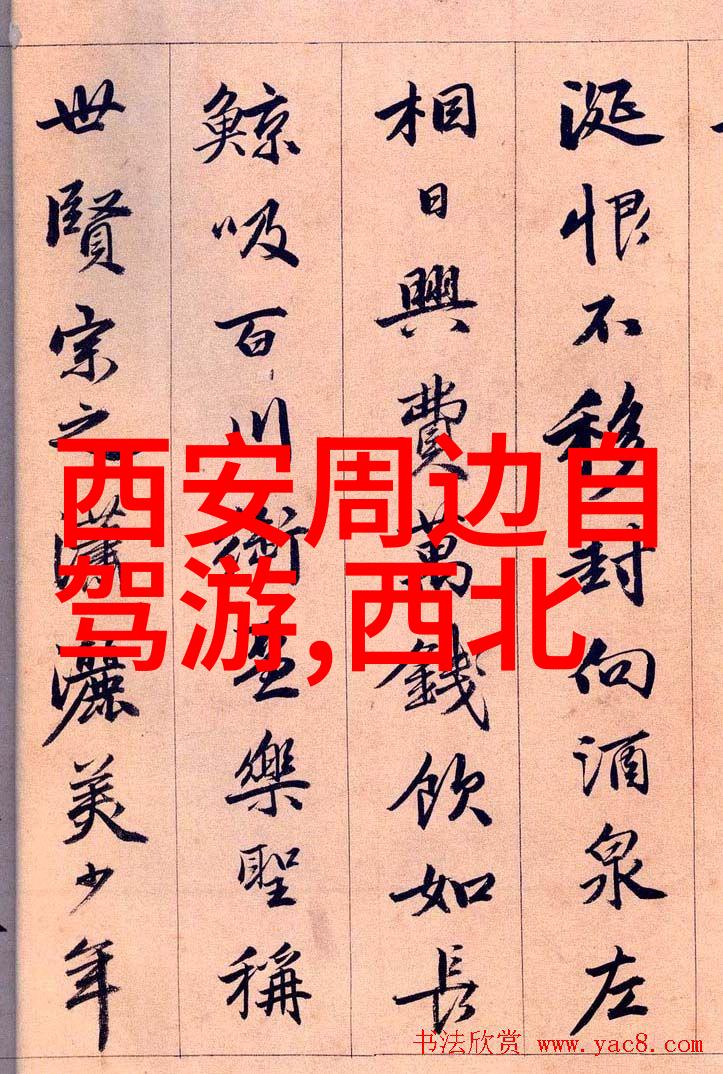 涎恨不移封向酒泉左
相日興費萬錢飲如長
鯨吸百川銜盃樂聖稱
世賢宗之瀟灑美少年
西安周边自
驾游,西北
书法欣赏 www.yac8.com